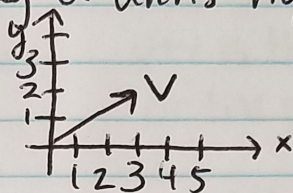 y
3
V
2
1
x
1 2 3 4 5